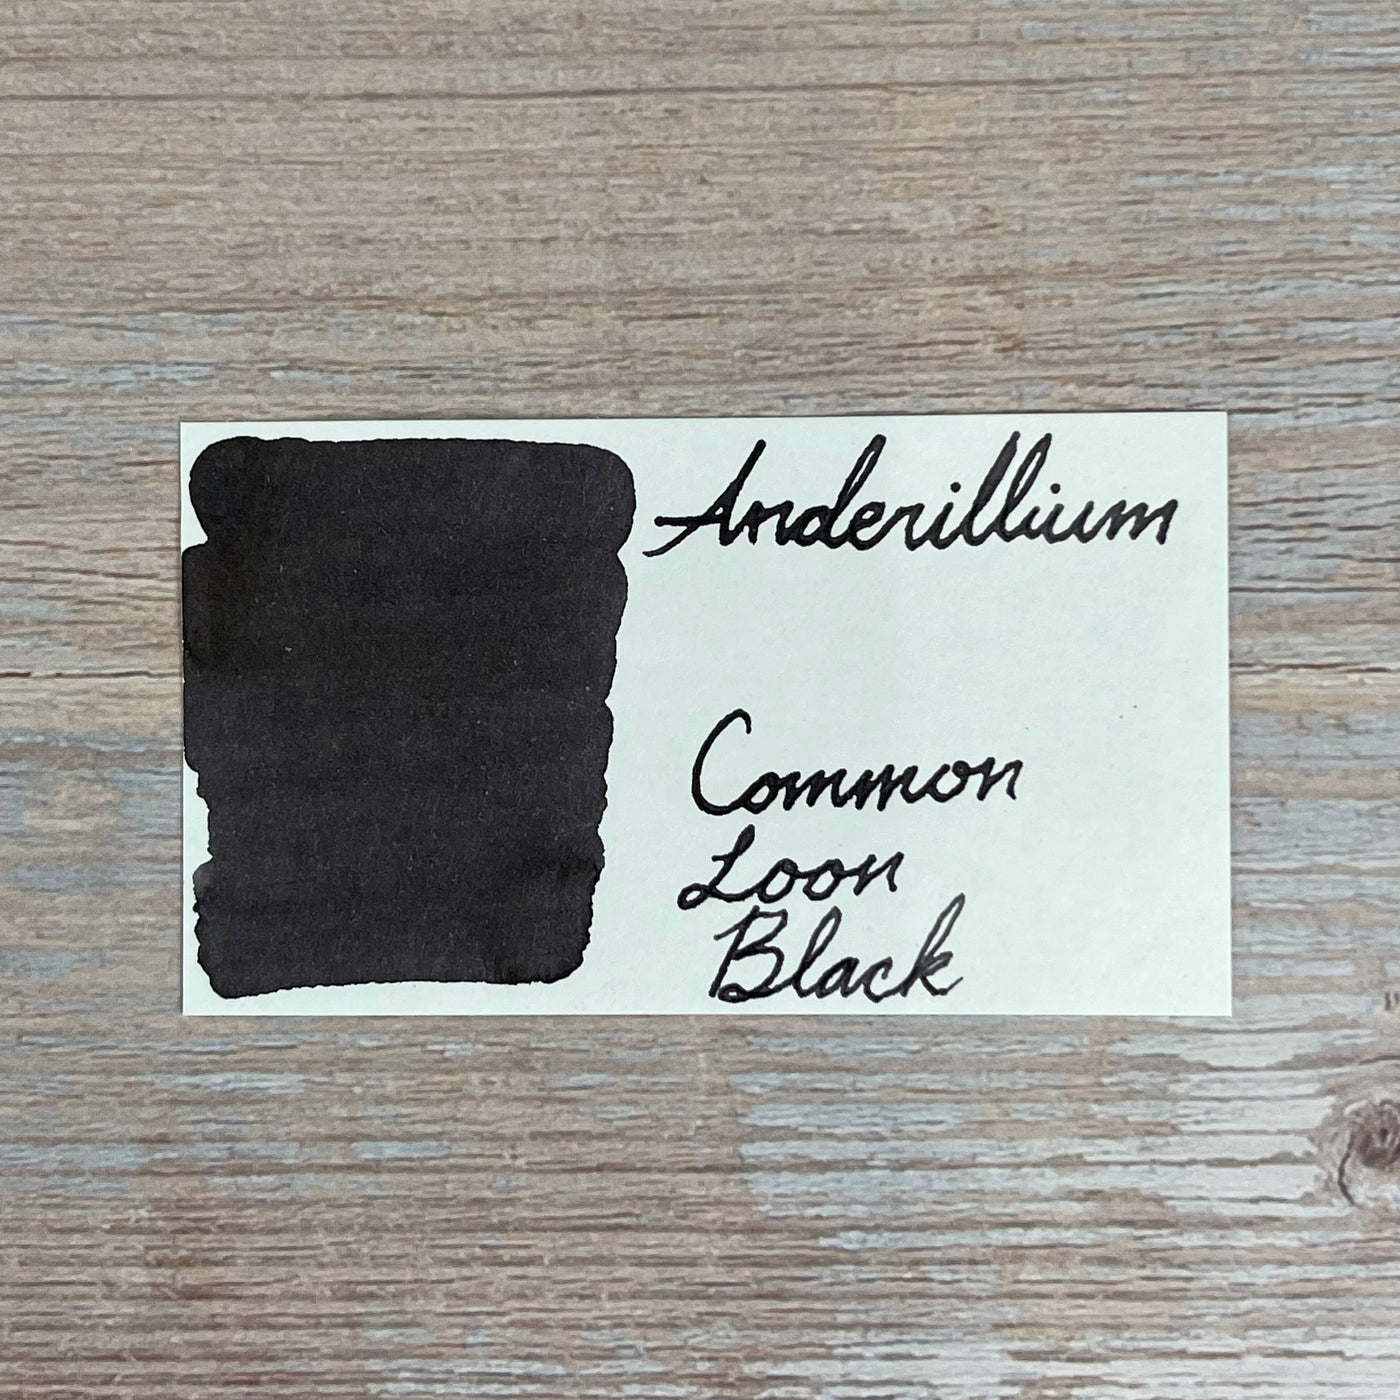 Anderillium
Common
Loon
Black